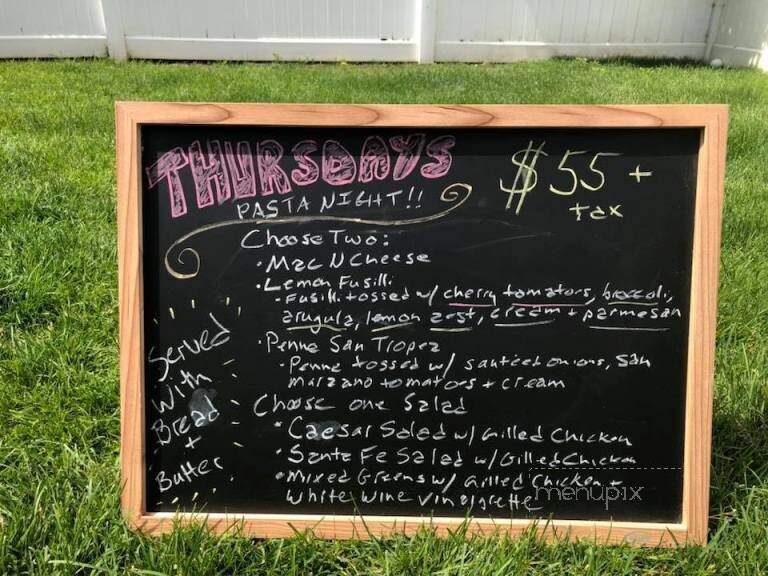 THURSDAYS
PASTA NIGHT!!
$55 +
tax
Choose Two:
• Mac N Cheese
• Lemon Fusilli
- Fusilli tossed w/ cherry tomatoes, broccoli,
arugula, lemon zest, cream + parmesan
• Penne San Tropez
- Penne tossed w/ sauteed onions, San
Marzano tomatoes + cream
Choose one Salad
• Caesar Salad w/ Grilled Chicken
• Santa Fe Salad w/ Grilled Chicken
• Mixed Greens w/ Grilled Chicken +
White Wine Vinaigrette
Served
With
Bread
+
Butter
menupix